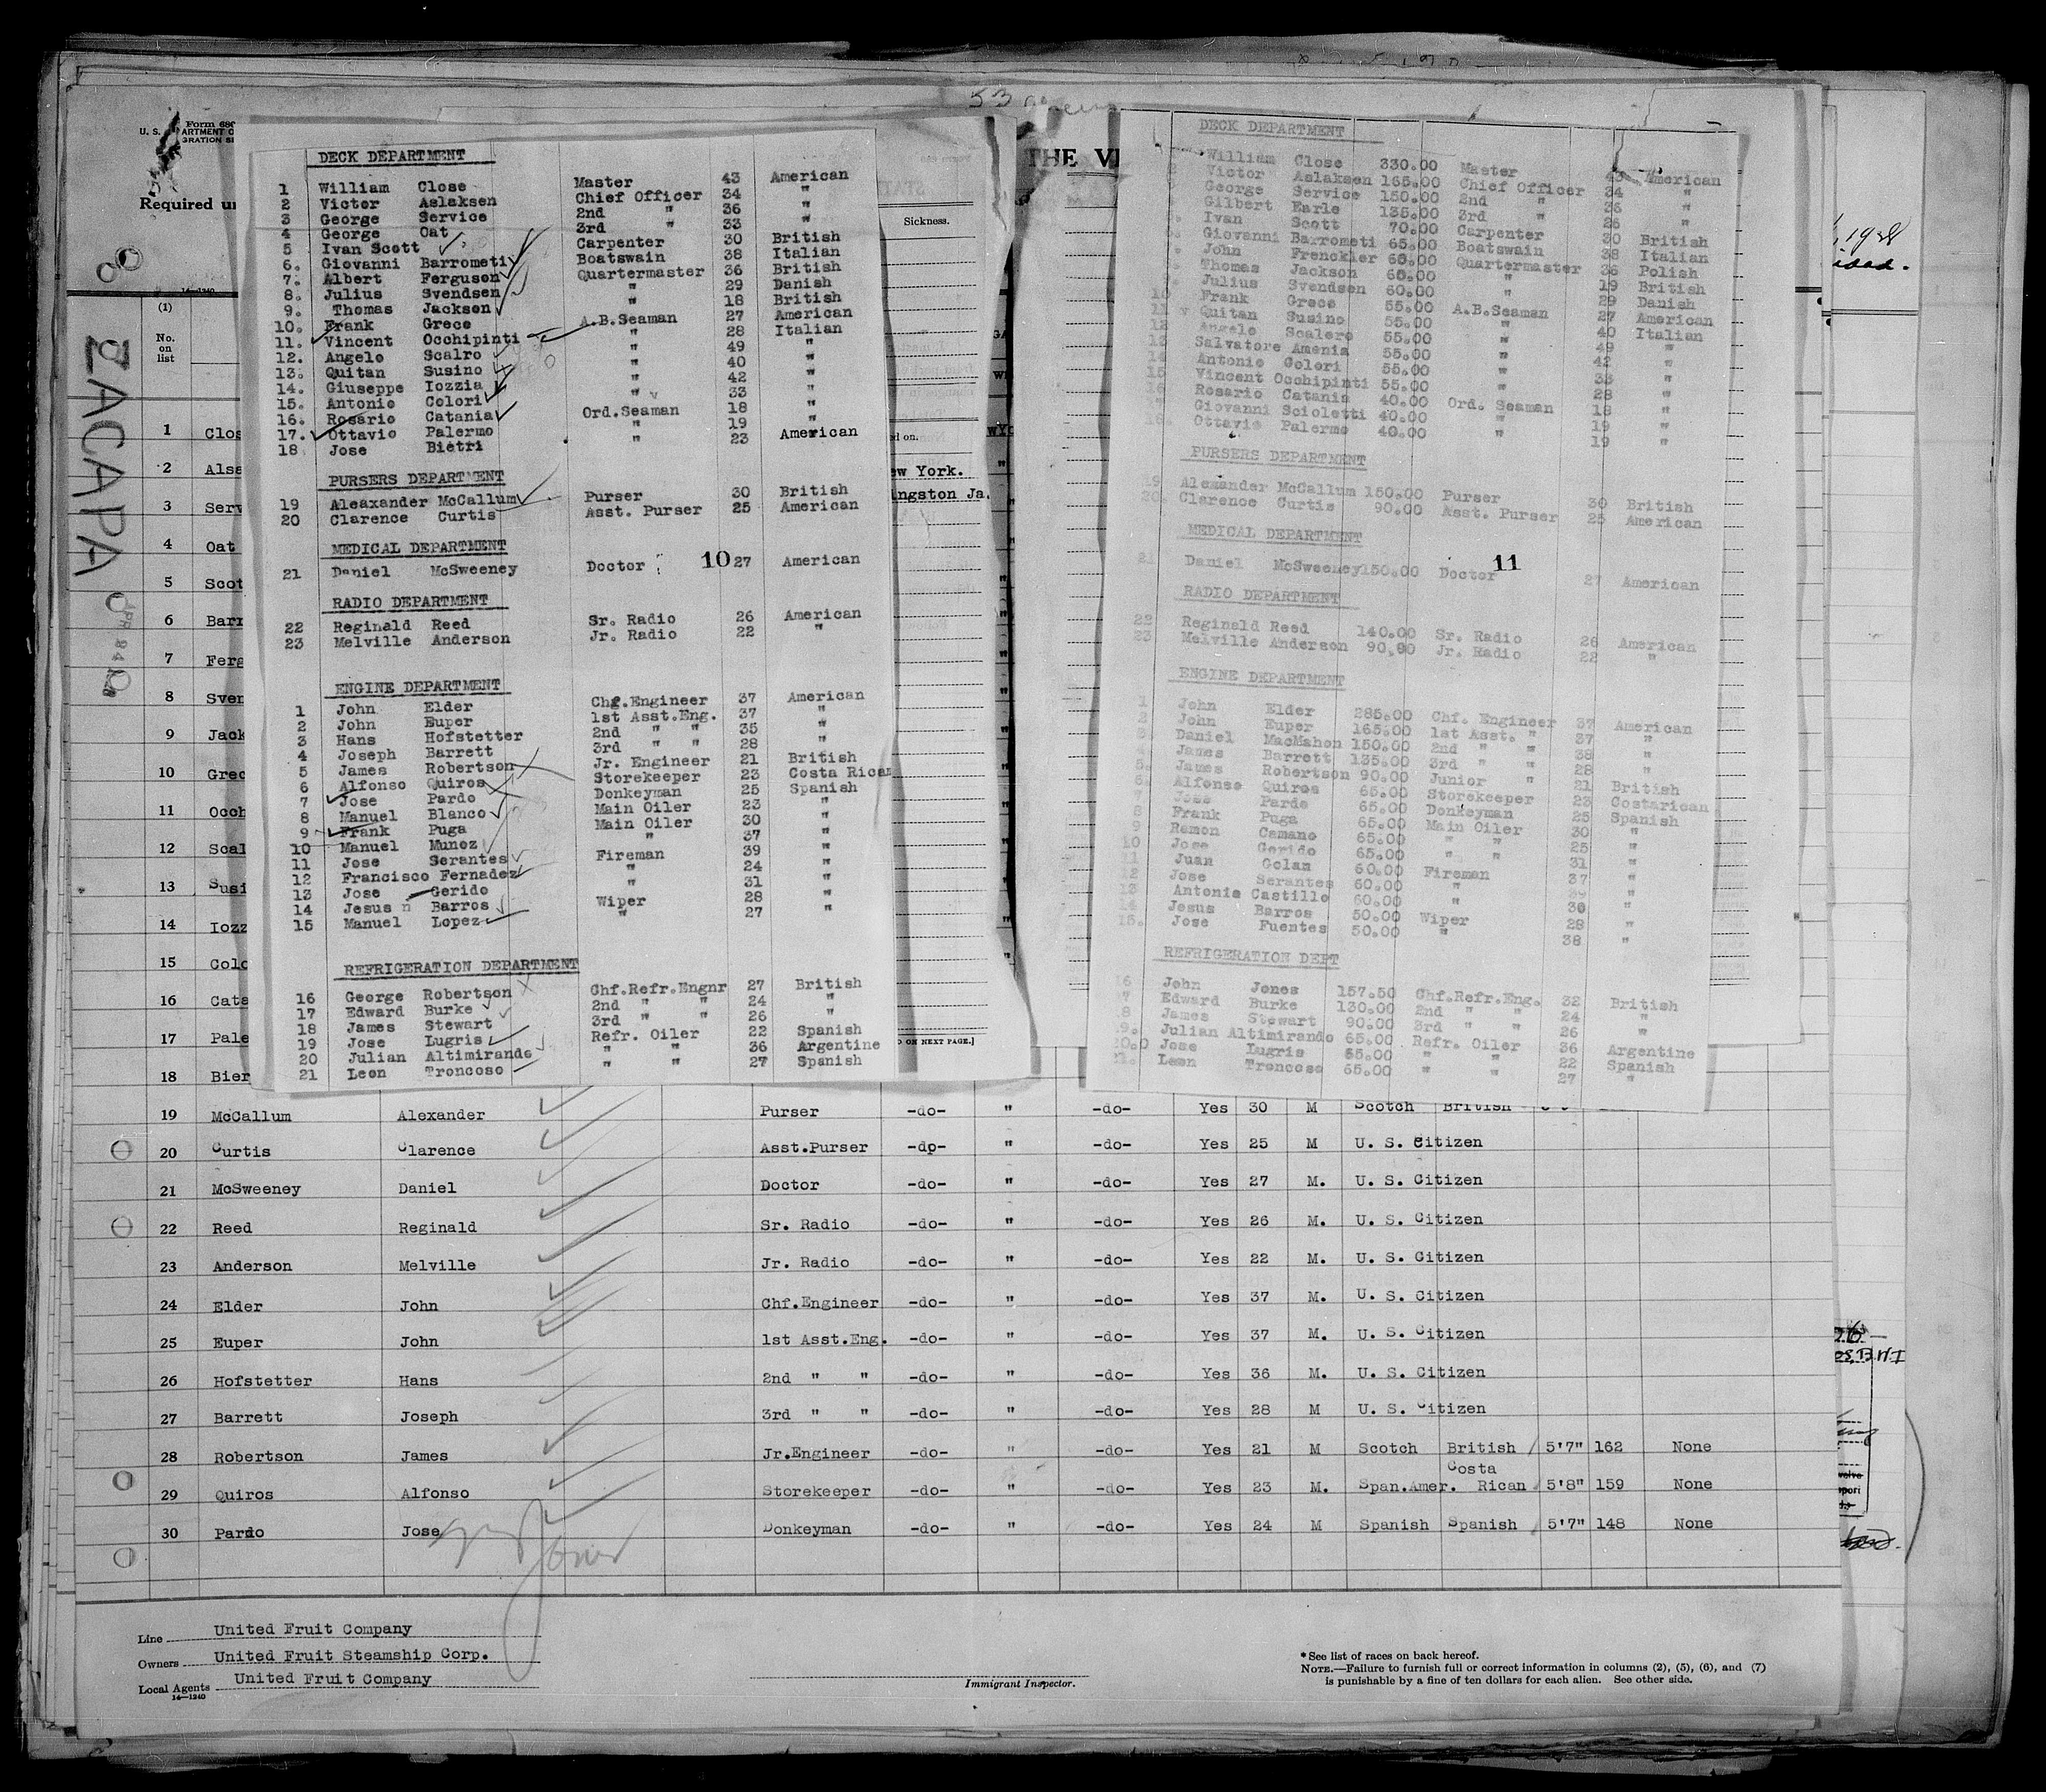 53
Form 680
U. S.
ARTMENT O
GRATION SE
Required un
14-1240
THE VI
Sickness.
, 1928
ZACAPA
(1)
No.
on
list
1 Clos
2 Alss
3 Serv
4 Oat
5 Scot
6 Barr
7 Ferg
8 Sven
9 Jack
10 Grec
11 Occh
12 Scal
13 Susi
14 Iozz
15 Colo
16 Cata
17 Pale
18 Bier
d on.
ew York.
ingston Ja.
D ON NEXT PAGE.]
DECK DEPARTMENT
1 William Close Master 43 American
2 Victor Aslaksen Chief Officer 34 "
3 George Service 2nd " 36 "
4 George Oat 3rd " 33 "
5 Ivan Scott Carpenter 30 British
6. Giovanni Barrometi Boatswain 38 Italian
7. Albert Ferguson Quartermaster 36 British
8. Julius Svendsen " 29 Danish
9. Thomas Jackson " 18 British
10. Frank Grece A.B.Seaman 27 American
11. Vincent Occhipinti " 28 Italian
12. Angelo Scalro " 49 "
13. Quitan Susino " 40 "
14. Giuseppe Iozzia " 42 "
15. Antonio Colori " 33 "
16. Rosario Catania Ord.Seaman 18 "
17. Ottavio Palermo " 19 "
18 Jose Bietri " 23 American
PURSERS DEPARTMENT
19 Aleaxander McCallum Purser 30 British
20 Clarence Curtis Asst. Purser 25 American
MEDICAL DEPARTMENT
21 Daniel McSweeney Doctor 10 27 American
RADIO DEPARTMENT
22 Reginald Reed Sr. Radio 26 American
23 Melville Anderson Jr. Radio 22 "
ENGINE DEPARTMENT
1 John Elder Chf.Engineer 37 American
2 John Euper 1st Asst.Eng. 37 "
3 Hans Hofstetter 2nd " " 35 "
4 Joseph Barrett 3rd " " 28 "
5 James Robertson Jr. Engineer 21 British
6 Alfonso Quiros Storekeeper 23 Costa Rican
7 Jose Pardo Donkeyman 25 Spanish
8 Manuel Blanco Main Oiler 23 "
9 Frank Puga Main Oiler 30 "
10 Manuel Munoz " 37 "
11 Jose Serantes Fireman 39 "
12 Francisco Fernadez " 24 "
13 Jose Gerido " 31 "
14 Jesus Barros Wiper 28 "
15 Manuel Lopez " 27 "
REFRIGERATION DEPARTMENT
16 George Robertson Chf.Refr.Engnr 27 British
17 Edward Burke 2nd " " 24 "
18 James Stewart 3rd " " 26 "
19 Jose Lugris Refr. Oiler 22 Spanish
20 Julian Altimirando " " 36 Argentine
21 Leon Troncoso " " 27 Spanish
DECK DEPARTMENT
William Close 330.00 Master 43 American
Victor Aslaksen 165.00 Chief Officer 34 "
George Service 150.00 2nd " 36 "
Gilbert Earle 135.00 3rd " 26 "
Ivan Scott 70.00 Carpenter 30 British
Giovanni Barrometi 65.00 Boatswain 38 Italian
John Frenckler 60.00 Quartermaster 36 Polish
Thomas Jackson 60.00 " 19 British
Julius Svendsen 60.00 " 29 Danish
10 Frank Grece 55.00 A.B.Seaman 27 American
11 Quitan Susino 55.00 " 40 Italian
12 Angelo Scalero 55.00 " 49 "
13 Salvatore Amenia 55.00 " 42 "
14 Antonio Colori 55.00 " 33 "
15 Vincent Occhipinti 55.00 " 28 "
16 Rosario Catania 40.00 Ord. Seaman 18 "
17 Giovanni Scioletti 40.00 " 19 "
18. Ottavio Palermo 40.00 " 19 "
PURSERS DEPARTMENT
19 Alexander McCallum 150.00 Purser 30 British
20. Clarence Curtis 90.00 Asst. Purser 25 American
MEDICAL DEPARTMENT
21 Daniel McSweeney 150.00 Doctor 11 27 American
RADIO DEPARTMENT
22 Reginald Reed 140.00 Sr. Radio 26 American
23 Melville Anderson 90.00 Jr. Radio 22 "
ENGINE DEPARTMENT
1 John Elder 285.00 Chf. Engineer 37 American
2 John Euper 165.00 1st Asst. " 37 "
3 Daniel MacMahon 150.00 2nd " " 38 "
4. James Barrett 135.00 3rd " " 28 "
5. James Robertson 90.00 Junior " 21 British
6. Alfonso Quiros 65.00 Storekeeper 23 Costarican
7 Jose Pardo 65.00 Donkeyman 25 Spanish
8 Frank Puga 65.00 Main Oiler 30 "
9 Ramon Camano 65.00 " " 25 "
10 Jose Gerido 65.00 " " 31 "
11 Juan Golan 60.00 Fireman 37 "
12 Jose Serantes 60.00 " 39 "
13 Antonio Castillo 60.00 " 30 "
14 Jesus Barros 50.00 Wiper 28 "
15. Jose Fuentes 50.00 " 38 "
REFRIGERATION DEPT
6 John Jones 157.50 Chf.Refr.Eng. 32 British
7 Edward Burke 130.00 2nd " " 24 "
8 James Stewart 90.00 3rd " " 26 "
9. Julian Altimirando 65.00 Refr. Oiler 36 Argentine
0.0 Jose Lugris 65.00 " " 22 Spanish
21. Leon Troncoso 65.00 " " 27 "
19 McCallum Alexander Purser -do- " -do- Yes 30 M Scotch British
20 Curtis Clarence Asst.Purser -do- " -do- Yes 25 M U. S. Citizen
21 McSweeney Daniel Doctor -do- " -do- Yes 27 M. U. S. Citizen
22 Reed Reginald Sr. Radio -do- " -do- Yes 26 M. U. S. Citizen
23 Anderson Melville Jr. Radio -do- " -do- Yes 22 M. U. S. Citizen
24 Elder John Chf.Engineer -do- " -do- Yes 37 M. U. S. Citizen
25 Euper John 1st Asst.Eng. -do- " -do- Yes 37 M. U. S. Citizen
26 Hofstetter Hans 2nd " " -do- " -do- Yes 36 M. U. S. Citizen
27 Barrett Joseph 3rd " " -do- " -do- Yes 28 M U. S. Citizen
28 Robertson James Jr.Engineer -do- " -do- Yes 21 M Scotch British 5'7" 162 None
29 Quiros Alfonso Storekeeper -do- " -do- Yes 23 M. Span.Amer. Costa Rican 5'8" 159 None
30 Pardo Jose Donkeyman -do- " -do- Yes 24 M Spanish Spanish 5'7" 148 None
Line United Fruit Company
Owners United Fruit Steamship Corp.
Local Agents United Fruit Company
14-1240
Immigrant Inspector.
*See list of races on back hereof.
NOTE.—Failure to furnish full or correct information in columns (2), (5), (6), and (7)
is punishable by a fine of ten dollars for each alien. See other side.